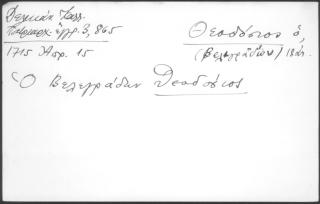 Δελικάνη Καλλ.
Πατριαρχ. ἔγγρ. 3, 865
1715 Ἀπρ. 15
Θεοδόσιος ὁ,
(Βελεγράδων) 
Ὁ Βελεγράδων Θεοδόσιος